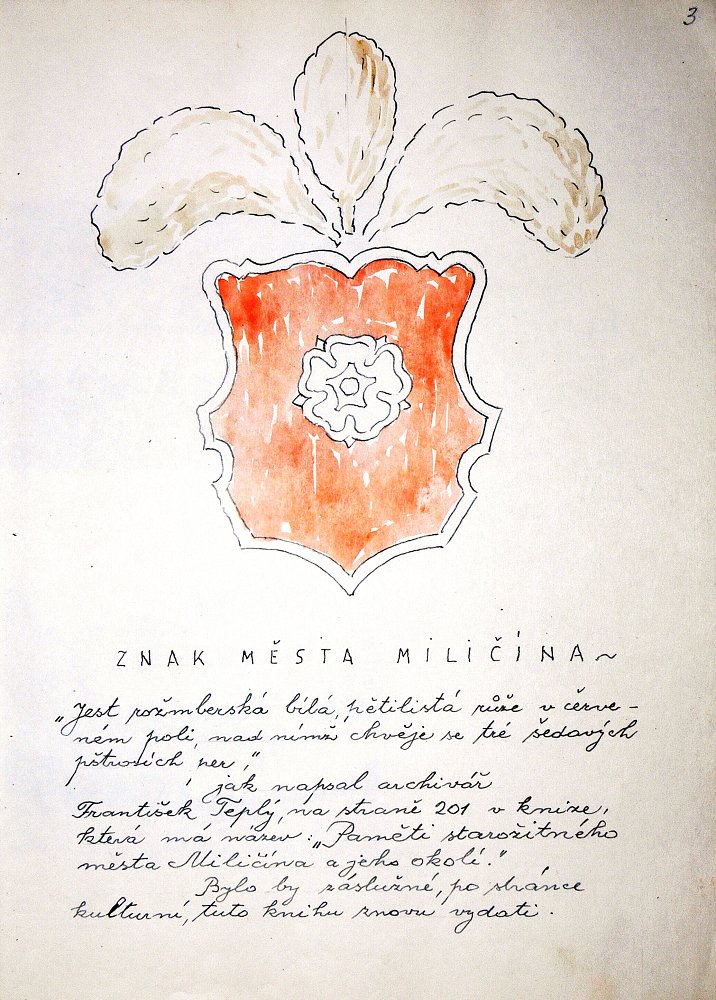 3
ZNAK MĚSTA MILIČÍNA~
„Jest rožmberská bílá, pětilistá růže v červe-
ném poli, nad nímž chvěje se tré šedavých
pštrosích per,"
jak napsal archivář
František Teplý, na straně 201 v knize,
která má název: „Paměti starožitného
města Miličína a jeho okolí."
Bylo by záslužné, po stránce
kulturní, tuto knihu znovu vydati.